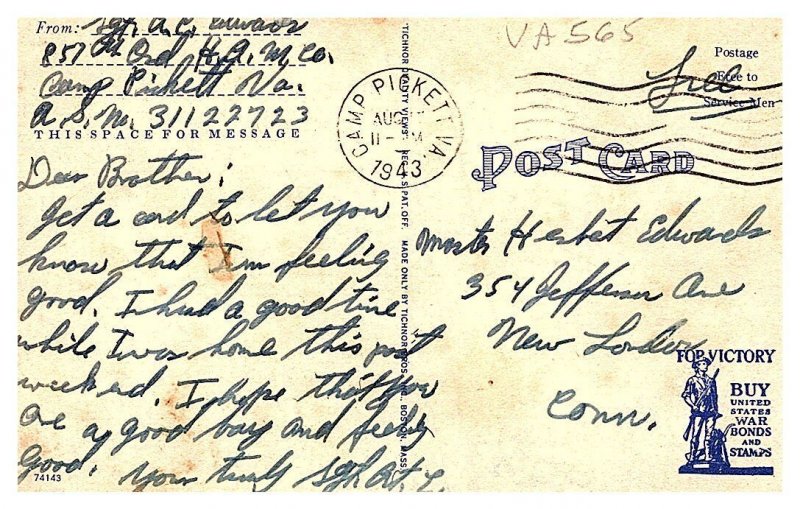 From: Sgt. A. C. Edwards
857th Ord. H. A. M. Co.
Camp Pickett Va.
A. S. N. 31122723
THIS SPACE FOR MESSAGE
Dear Brother;
Just a card to let you
know that I'm feeling
good. I had a good time
while I was home this past
weekend. I hope that you
are a good boy and feeling
Good. Yours truly Sgt. Art.
74143
TICHNOR QUALITY VIEWS REG. U.S. PAT. OFF. MADE ONLY BY TICHNOR BROS., INC., BOSTON, MASS.
CAMP PICKETT, VA.
AUG
11 - AM
1943
VA 565
Postage
Free to
Service Men
Free
POST CARD
Master Herbert Edwards
354 Jefferson Ave
New London
Conn.
FOR VICTORY
BUY
UNITED
STATES
WAR
BONDS
AND
STAMPS